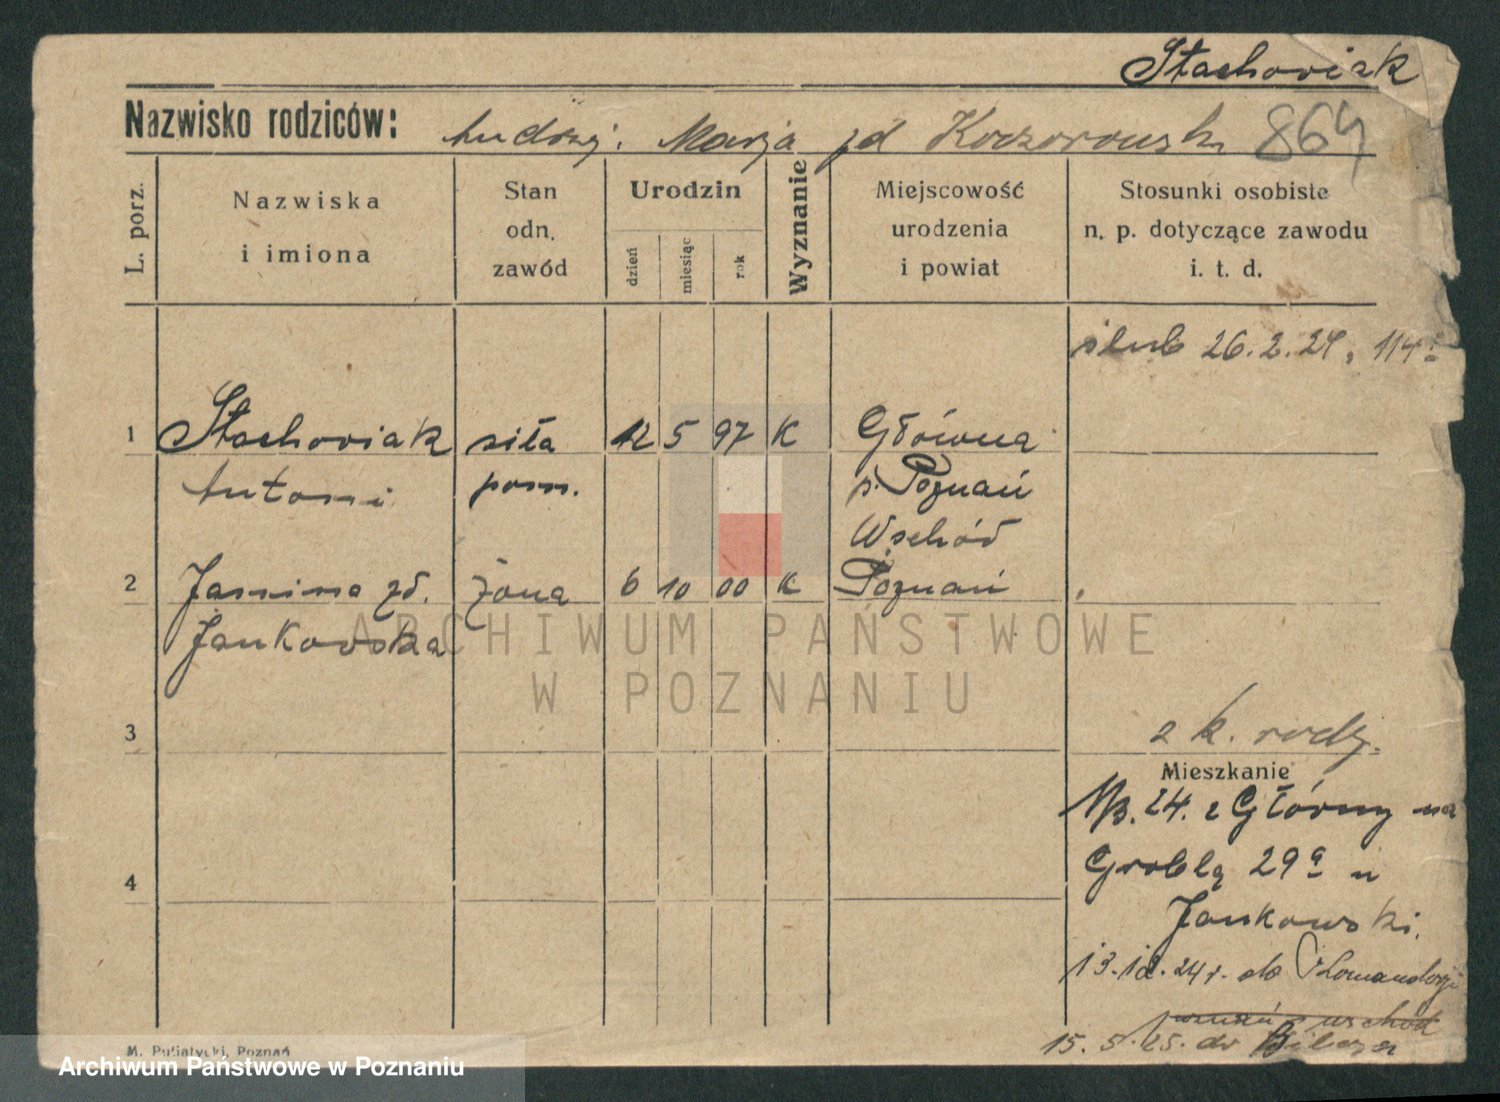 Stachowiak
Nazwisko rodziców: Andrzej. Marja zd Koczorowsk 864
L. porz.
Nazwiska i imiona
Stan odn. zawód
Urodzin
dzień
miesiąc
rok
Wyznanie
Miejscowość urodzenia i powiat
Stosunki osobiste n. p. dotyczące zawodu i. t. d.
ślub 26.2.24,
1 Stachowiak siła 12 5 97 K Główna
Antoni pom. p. Poznań
Wschód
2 Janina zd. żona 6 10 00 K Poznań
Jankowska
3
z k. rodz.
Mieszkanie
24. z Główny na
4
Groblą 29a u
Jankowski.
13.12.24r. do
wschód
15.5.25. do
M. Putiatycki, Poznań
ARCHIWUM PAŃSTWOWE
W POZNANIU
Archiwum Państwowe w Poznaniu